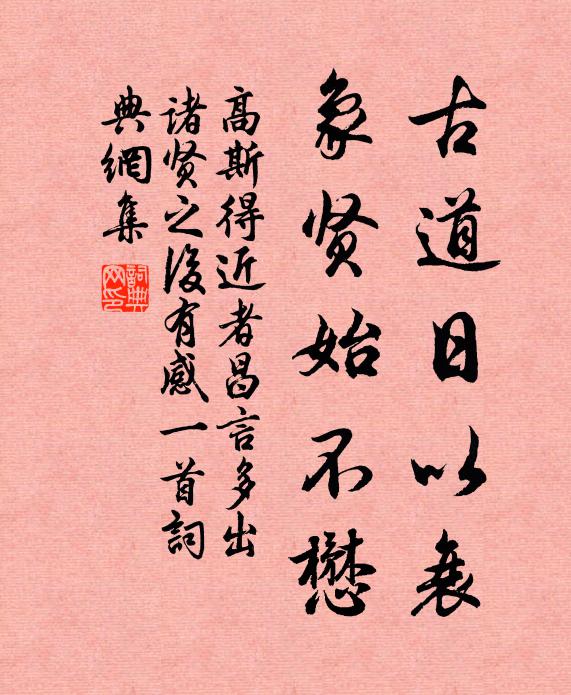 古道日以衰
象贤始不懋
高斯得近者昌言多出
诸贤之後有感一首詞
典網集
詞典网印